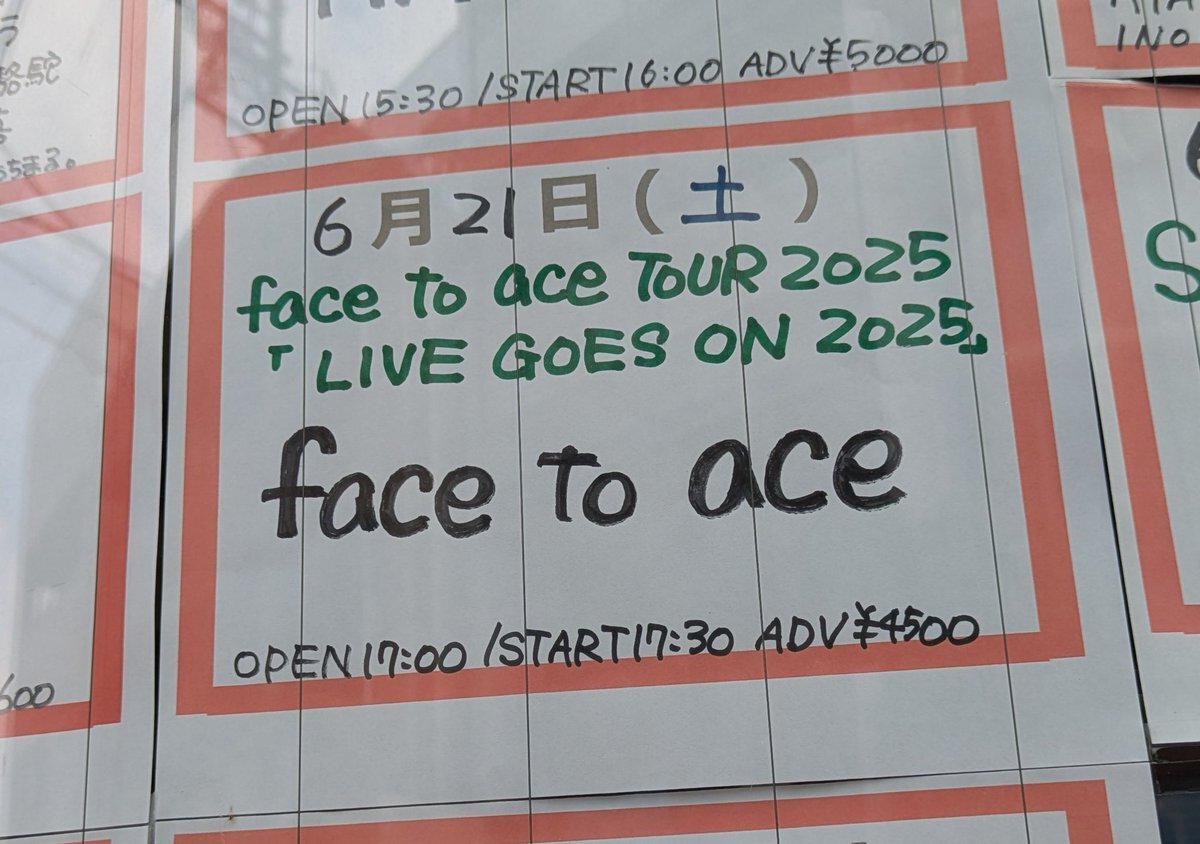 OPEN 15:30 /START 16:00 ADV ¥5000
6月21日(土)
face to ace TOUR 2025
「LIVE GOES ON 2025」
face to ace
OPEN 17:00 /START 17:30 ADV ¥4500
駱駝
ちまる。
600
INO
S